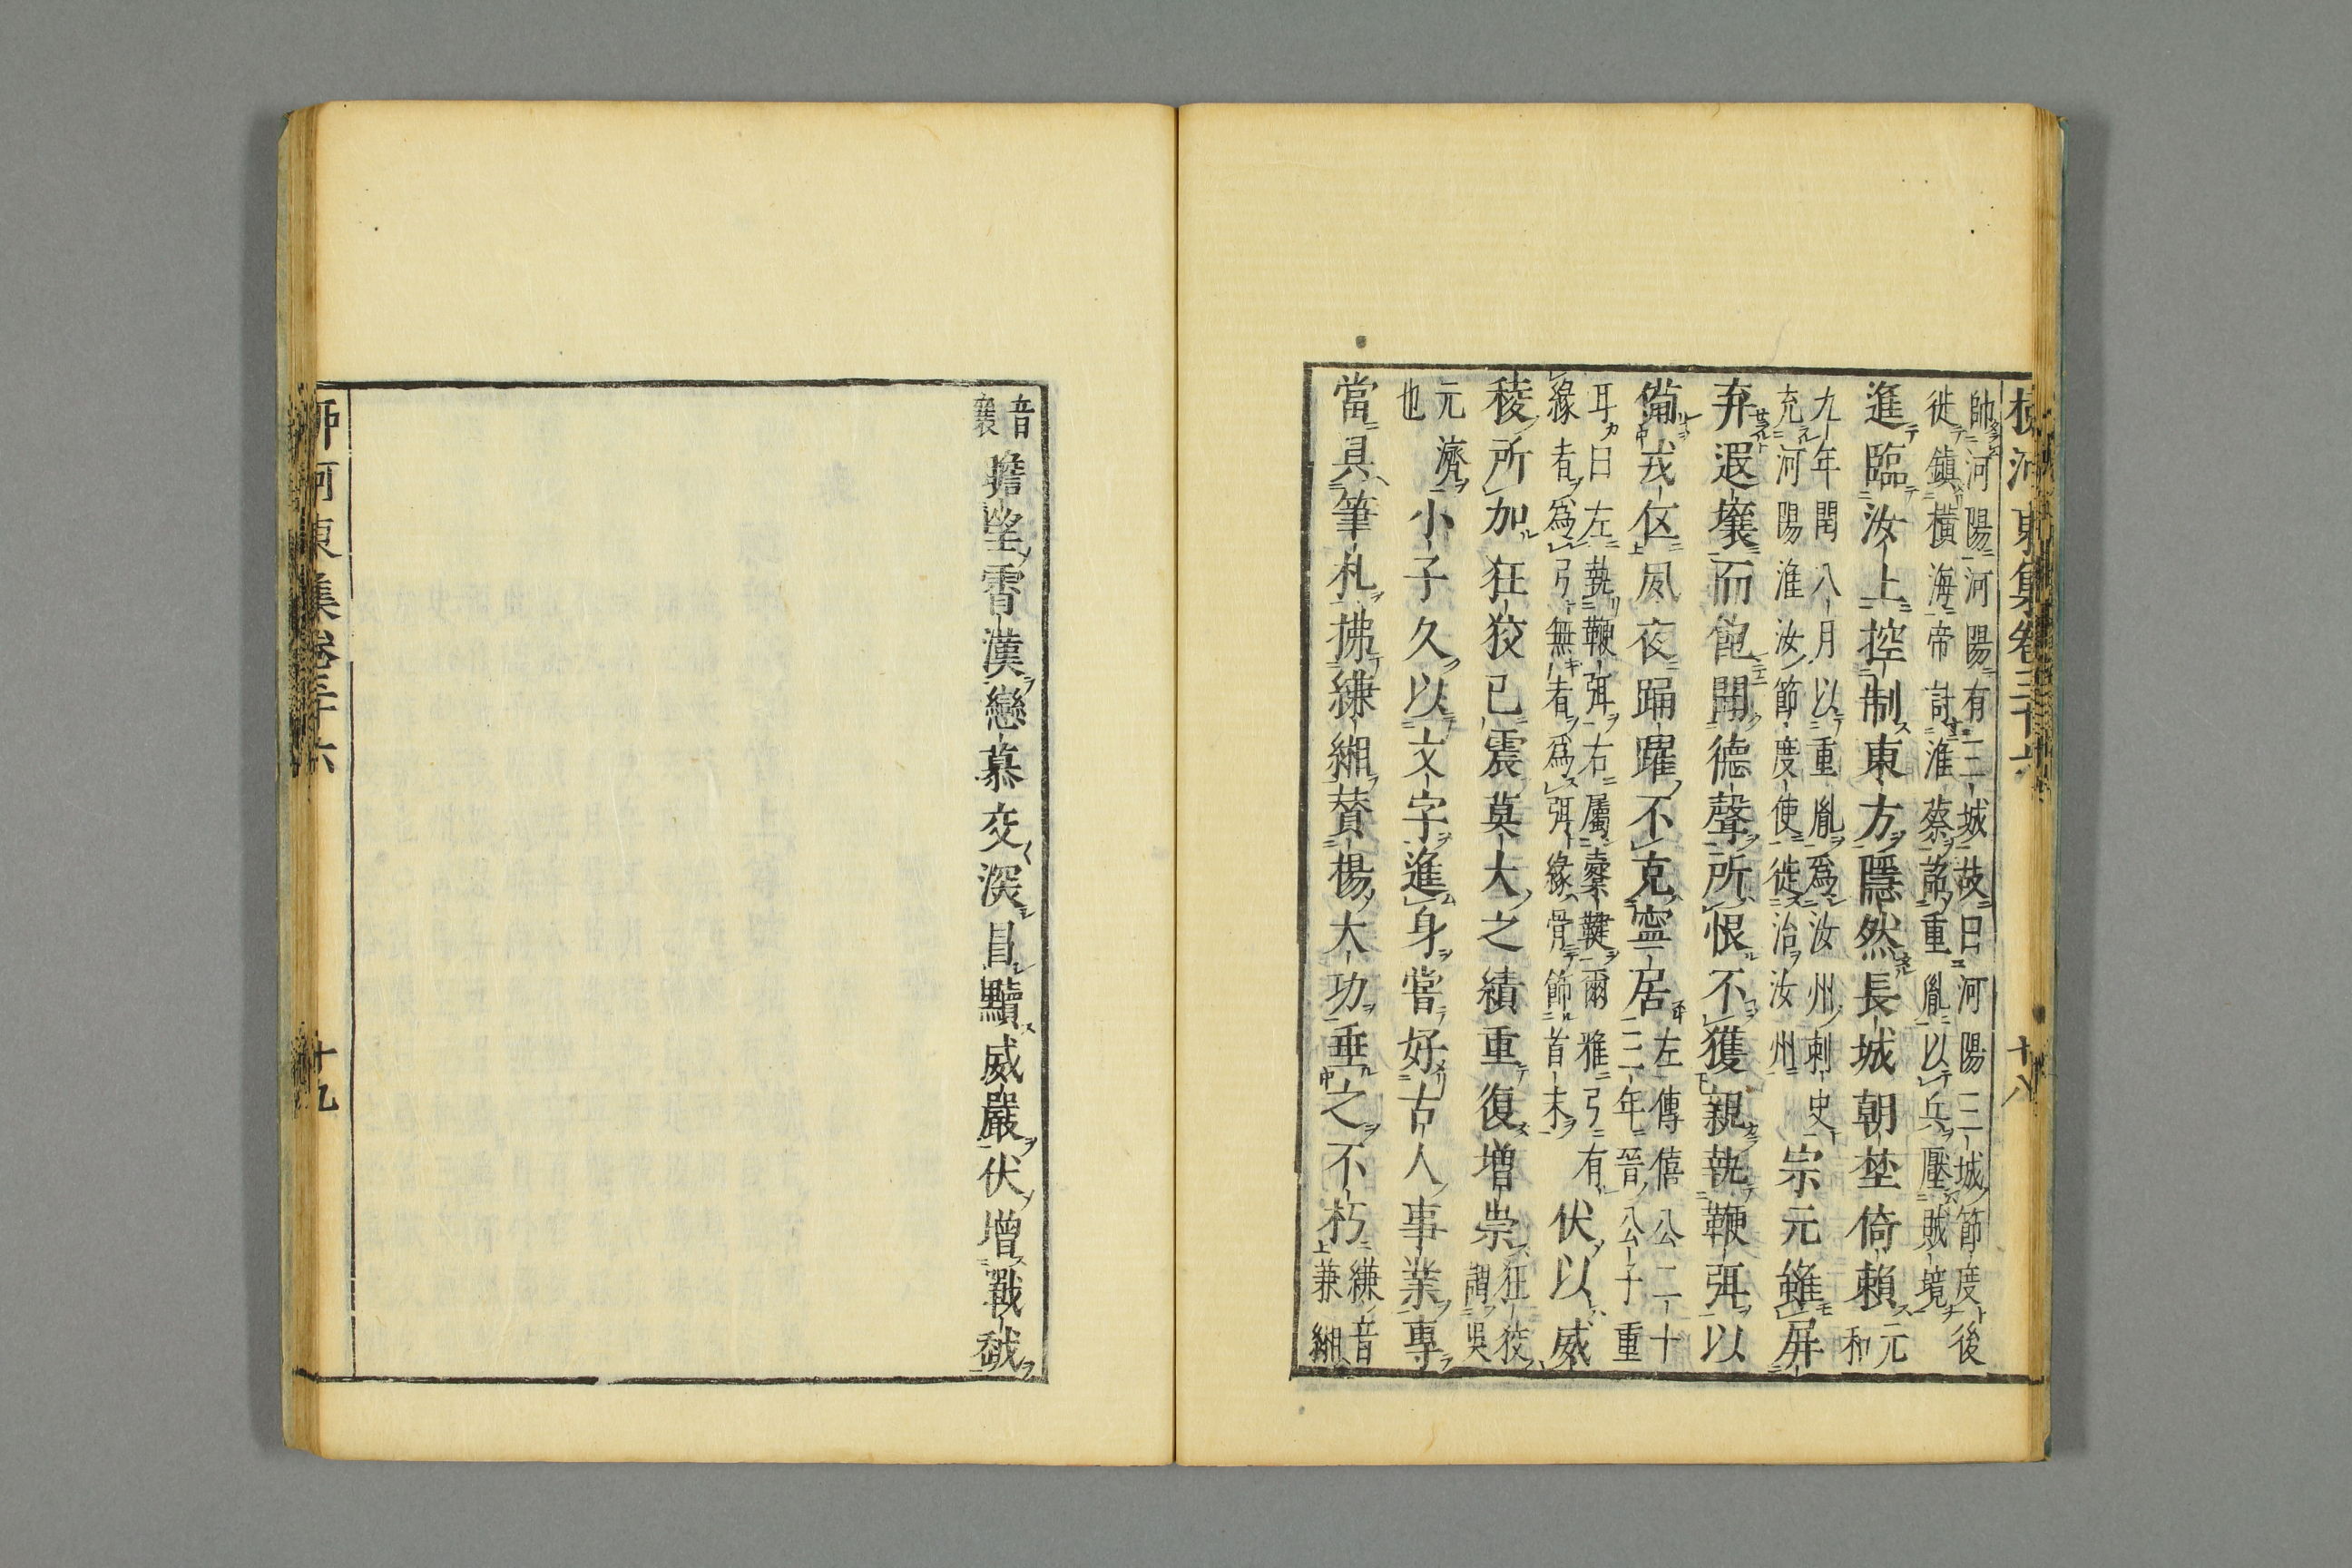 柳河東集卷三十六　十八
帥河陽河陽有三城故曰河陽三城節度後
徙鎮橫海帝討淮蔡詔重胤以兵壓賊境
進臨汝上控制東方隱然長城朝埜倚賴元和
九年閏八月以重胤爲汝州刺史
充河陽淮汝節度使徙治汝州
宗元雖屏
弃遐壤而飽聞德聲所恨不獲親執鞭弭以
備戎伍夙夜踊躍不克寧居左傳僖公二十
三年晉公子重
耳曰左執鞭弭右屬櫜鞬爾雅弓有
緣者爲弓無緣者爲弭緣骨飾首末
伏以威
稜所加狂狡已震莫大之績重復增崇狂狡
謂吳
元濟
也
小子久以文字進身嘗好古人事業專
當具筆札拂縑緗贊揚大功垂之不朽縑音
兼緗
音
襄
瞻望霄漢戀慕交深冒黷威嚴伏增戰慄
柳河東集卷三十六　十九